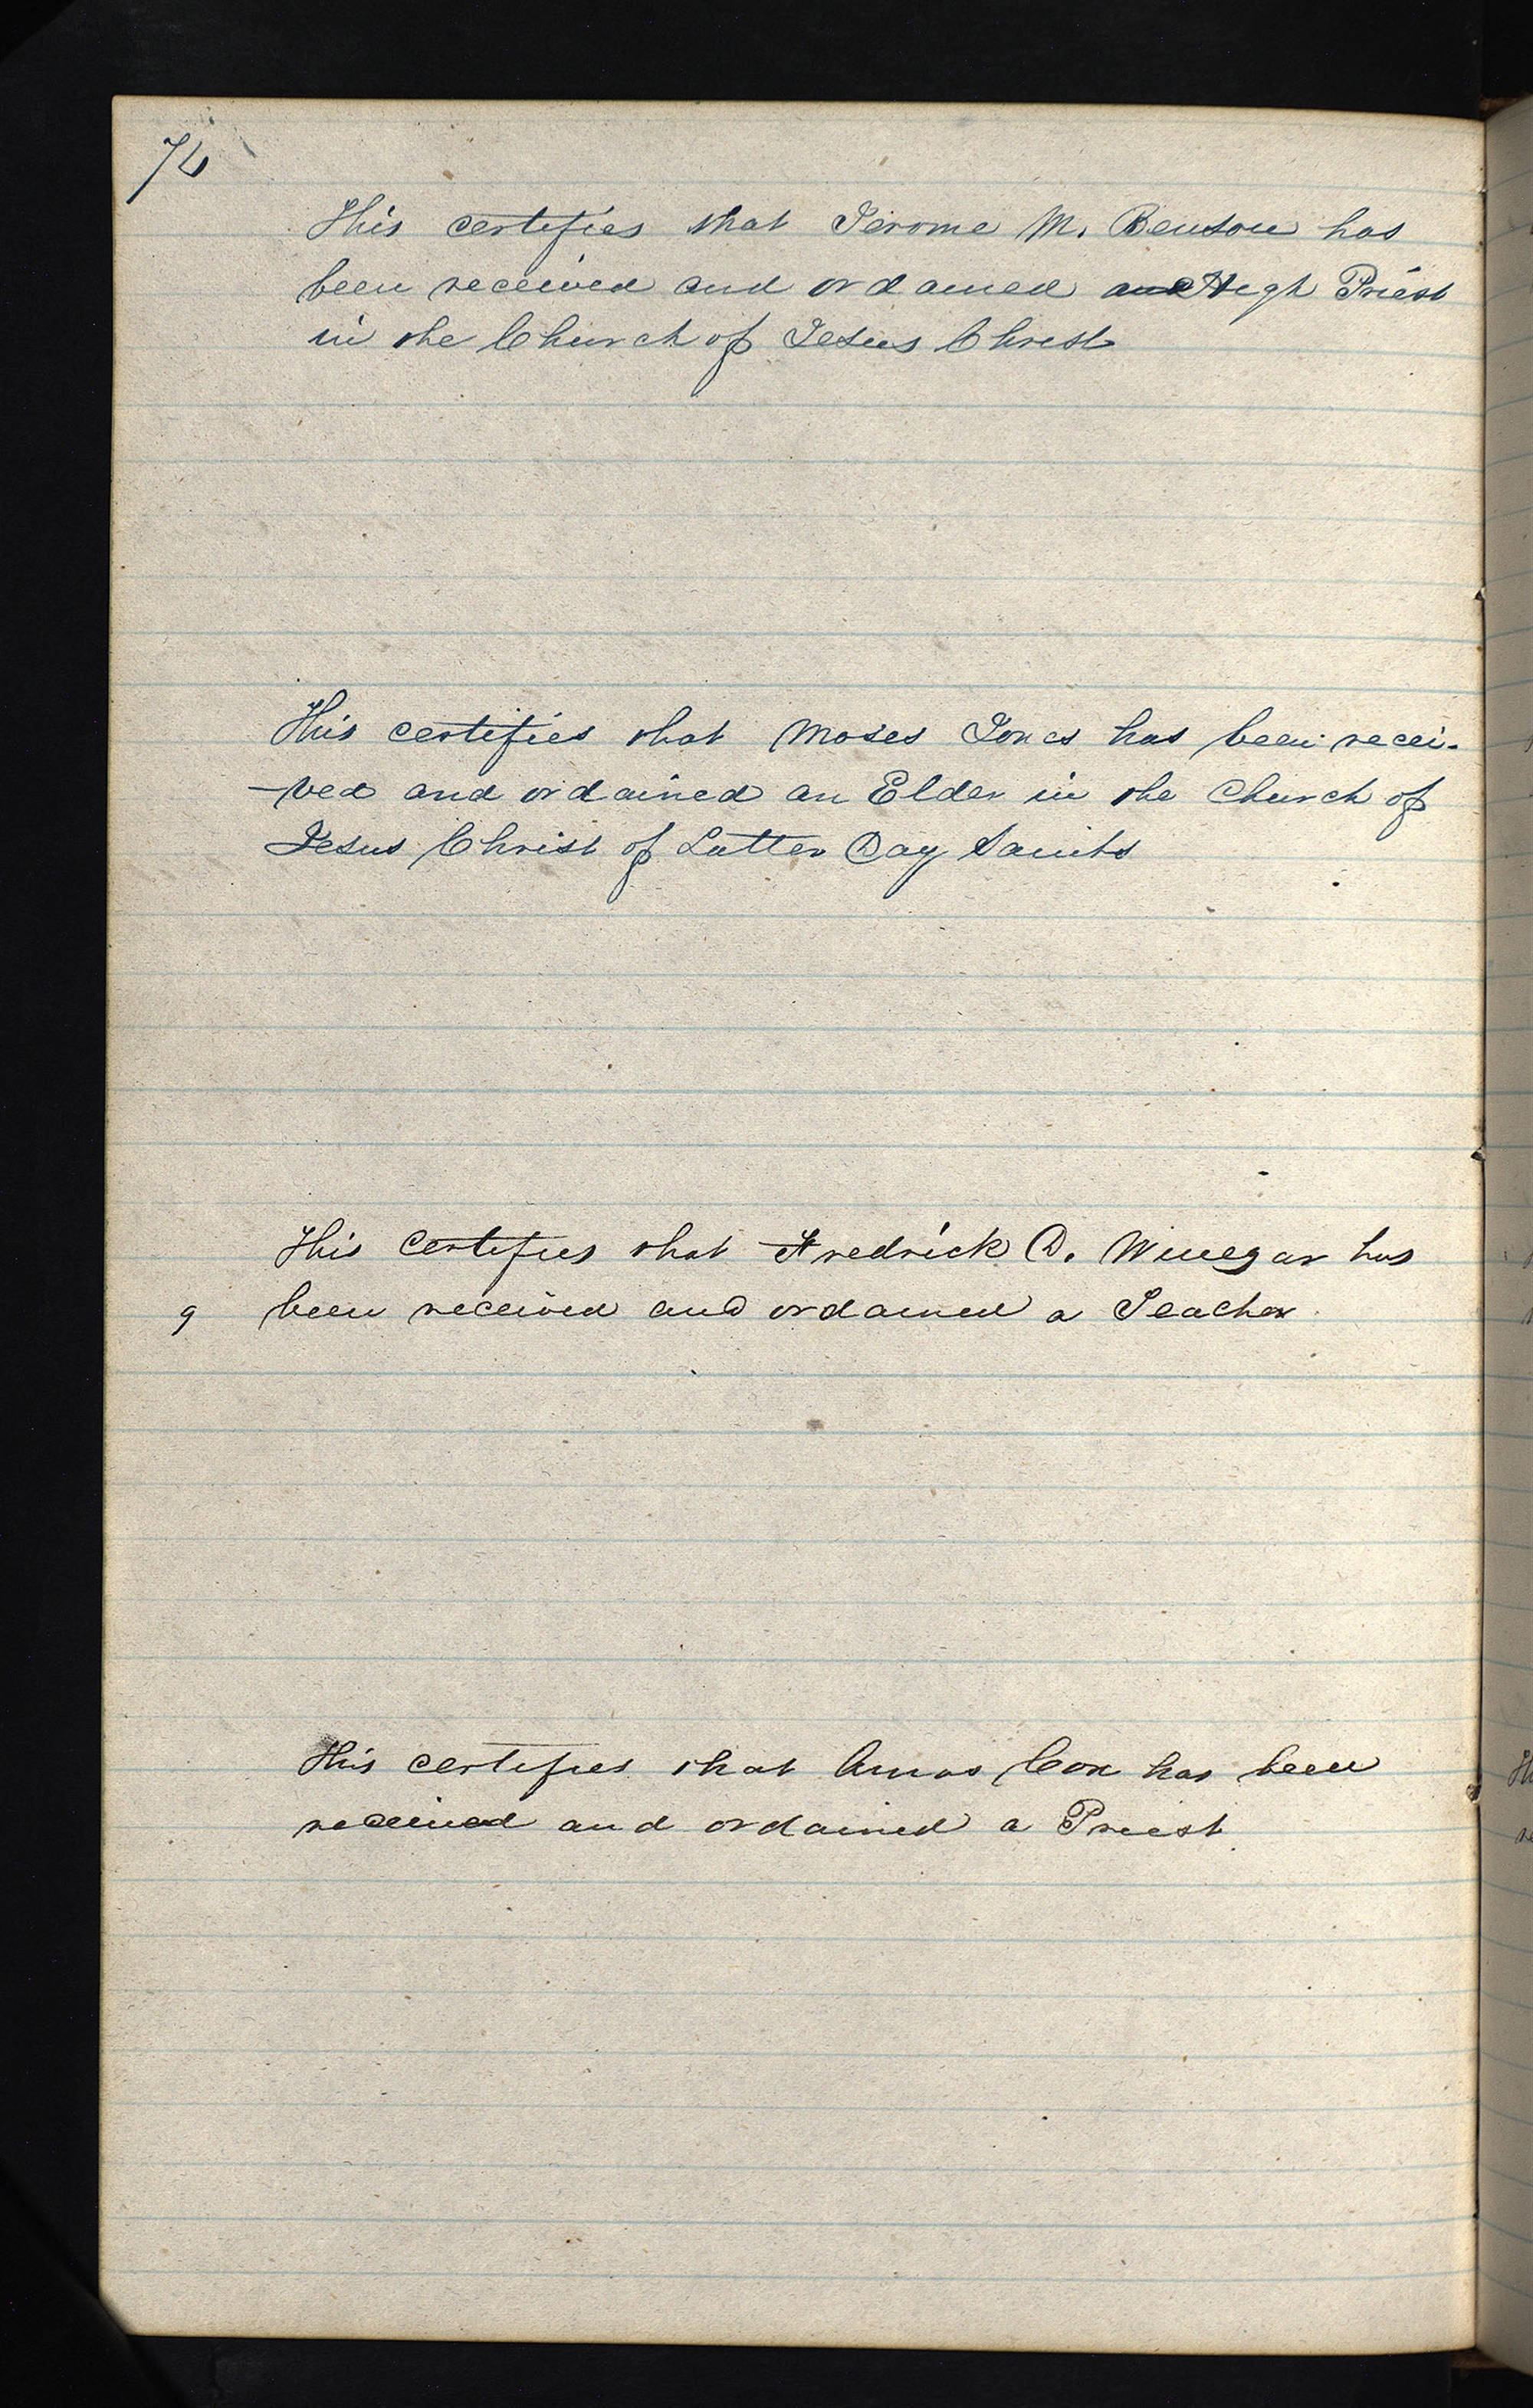 74
This certifies that Jerome M. Benson has
been received and ordained an High Priest
in the Church of Jesus Christ
This certifies that Moses Jones has been recei-
-ved and ordained an Elder in the Church of
Jesus Christ of Latter Day Saints
This certifies that Fredrick D. Winegar has
9 been received and ordained a Teacher
This certifies that Amos Cox has been
received and ordained a Priest.